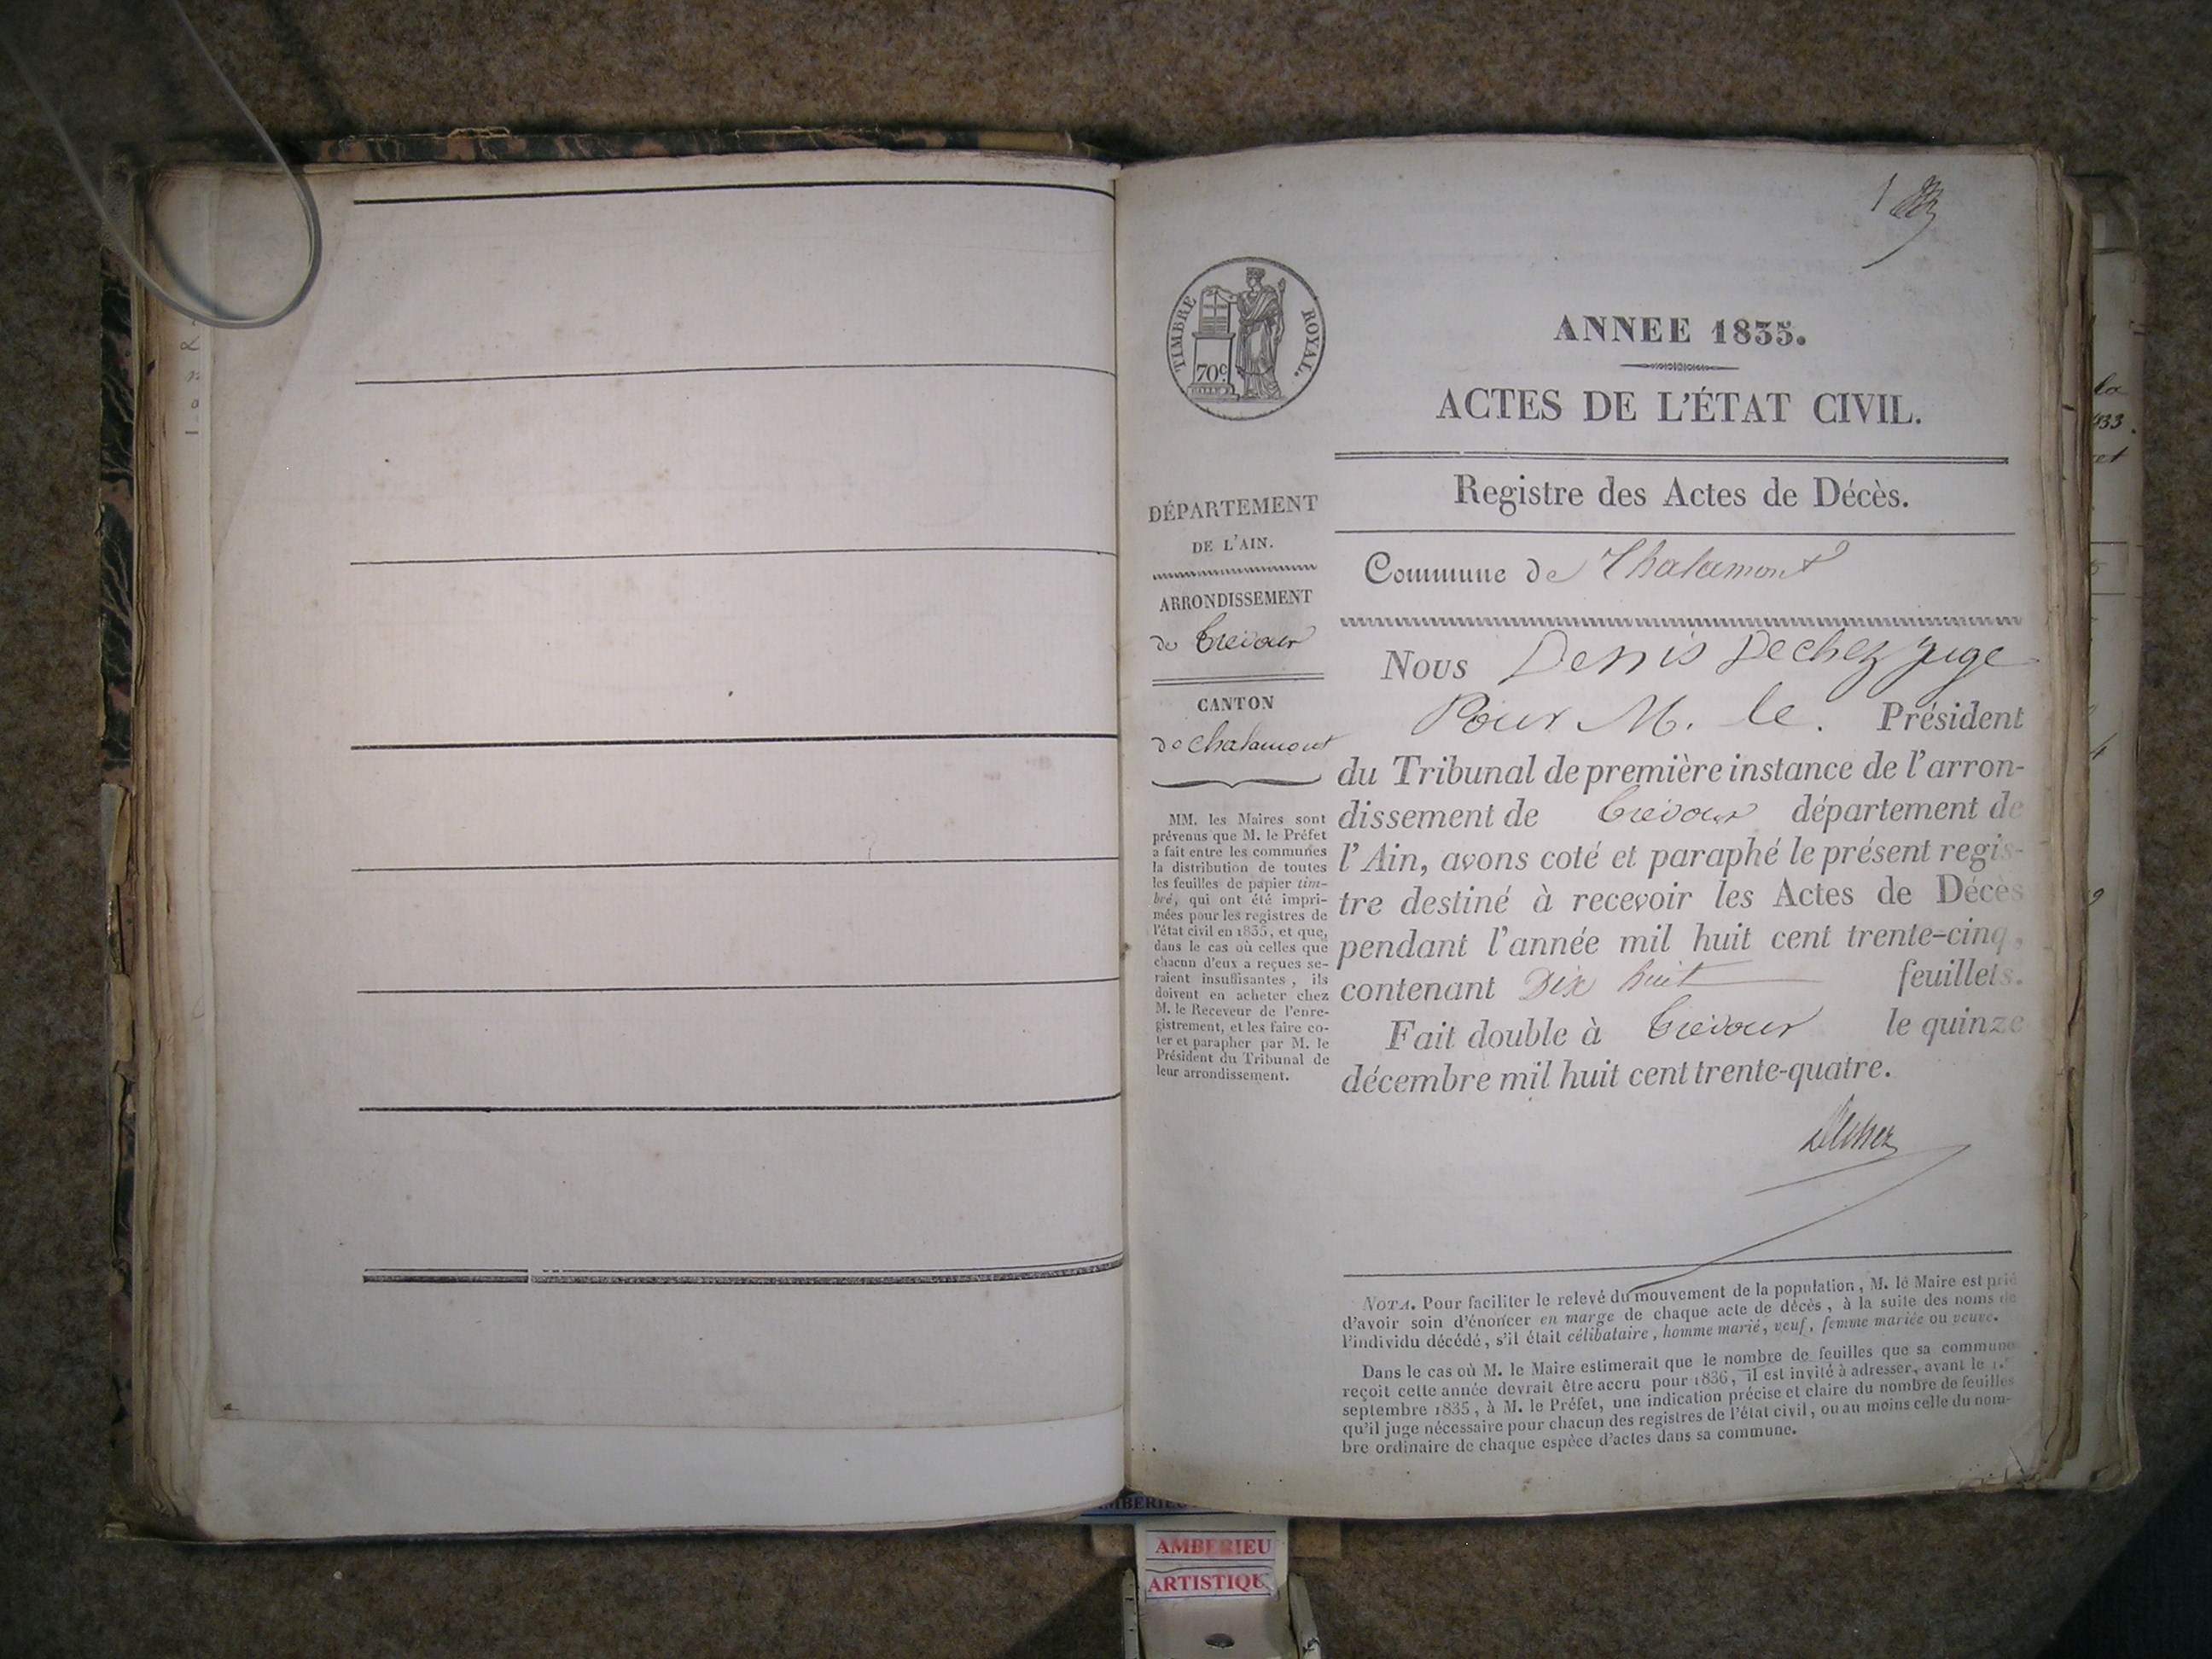 1
TIMBRE ROYAL.
70c
ANNEE 1835.
ACTES DE L'ÉTAT CIVIL.
Registre des Actes de Décès.
DÉPARTEMENT
DE L'AIN.
ARRONDISSEMENT
de Trévoux
CANTON
de Chalamont
MM. les Maires sont
prévenus que M. le Préfet
a fait entre les communes
la distribution de toutes
les feuilles de papier tim-
bré, qui ont été impri-
mées pour les registres de
l'état civil en 1835, et que,
dans le cas où celles que
chacun d'eux a reçues se-
raient insuffisantes, ils
doivent en acheter chez
M. le Receveur de l'enre-
gistrement, et les faire co-
ter et parapher par M. le
Président du Tribunal de
leur arrondissement.
Commune de Chalamont
Nous Denis Dechez juge
Pour M. le. Président
du Tribunal de première instance de l'arron-
dissement de Trévoux département de
l'Ain, avons coté et paraphé le présent regis-
tre destiné à recevoir les Actes de Décès
pendant l'année mil huit cent trente-cinq,
contenant Dix huit feuillets.
Fait double à Trévoux le quinze
décembre mil huit cent trente-quatre.
Dechez
NOTA. Pour faciliter le relevé du mouvement de la population, M. le Maire est prié
d'avoir soin d'énoncer en marge de chaque acte de décès, à la suite des noms de
l'individu décédé, s'il était célibataire, homme marié, veuf, femme mariée ou veuve.
Dans le cas où M. le Maire estimerait que le nombre de feuilles que sa commune
reçoit cette année devrait être accru pour 1836, il est invité à adresser, avant le 1.er
septembre 1835, à M. le Préfet, une indication précise et claire du nombre de feuilles
qu'il juge nécessaire pour chacun des registres de l'état civil, ou au moins celle du nom-
bre ordinaire de chaque espèce d'actes dans sa commune.
la
833.
et
AMBERIEU
ARTISTIQUE